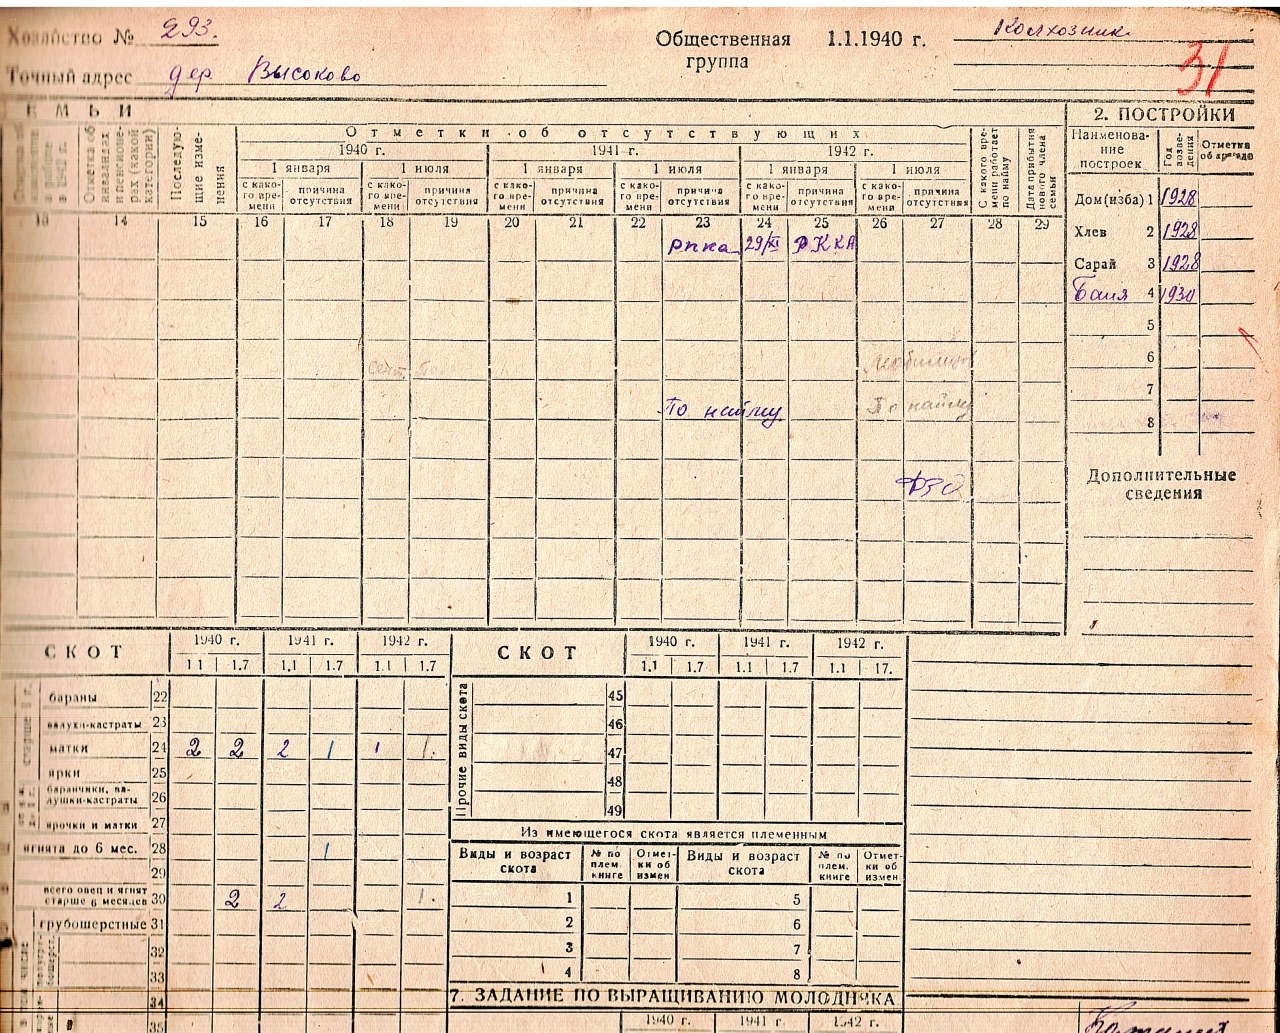 Хозяйство № 293.
Общественная группа 1.1.1940 г. Колхозник
31
Точный адрес дер. Высоково
ЕМЬИ
2. ПОСТРОЙКИ
Отметка об инвалидах и пенсионерах (какой категории)
Последующие изменения
Отметки об отсутствующих
С какого времени работает по найму
Дата прибытия нового члена семьи
1940 г. 1941 г. 1942 г.
1 января 1 июля 1 января 1 июля 1 января 1 июля
с какого времени причина отсутствия с какого времени причина отсутствия с какого времени причина отсутствия с какого времени причина отсутствия с какого времени причина отсутствия с какого времени причина отсутствия
13 14 15 16 17 18 19 20 21 22 23 24 25 26 27 28 29
Наименование построек Год возведения Отметка
Дом (изба) 1 1928
Хлев 2 1928
Сарай 3 1928
Баня 4 1930
5
6
7
8
рпка 29/XI РККА
По найму По найму
ФЗО
Дополнительные сведения
СКОТ 1940 г. 1941 г. 1942 г.
1.1 1.7 1.1 1.7 1.1 1.7
бараны 22
валухи-кастраты 23
матки 24 2 2 2 1 1 1.
ярки 25
баранчики, валушки-кастраты 26
ярочки и матки 27
ягнята до 6 мес. 28 1
29
всего овец и ягнят старше 6 месяцев 30 2 2 1.
грубошерстные 31
32
33
34
35
СКОТ 1940 г. 1941 г. 1942 г.
1.1 1.7 1.1 1.7 1.1 17.
Прочие виды скота
45
46
47
48
49
Из имеющегося скота является племенным
Виды и возраст скота № по плем. книге Отметки об измен Виды и возраст скота № по плем. книге Отметки об измен
1 5
2 6
3 7
4 8
7. ЗАДАНИЕ ПО ВЫРАЩИВАНИЮ МОЛОДНЯКА
1940 г. 1941 г. 1942 г.